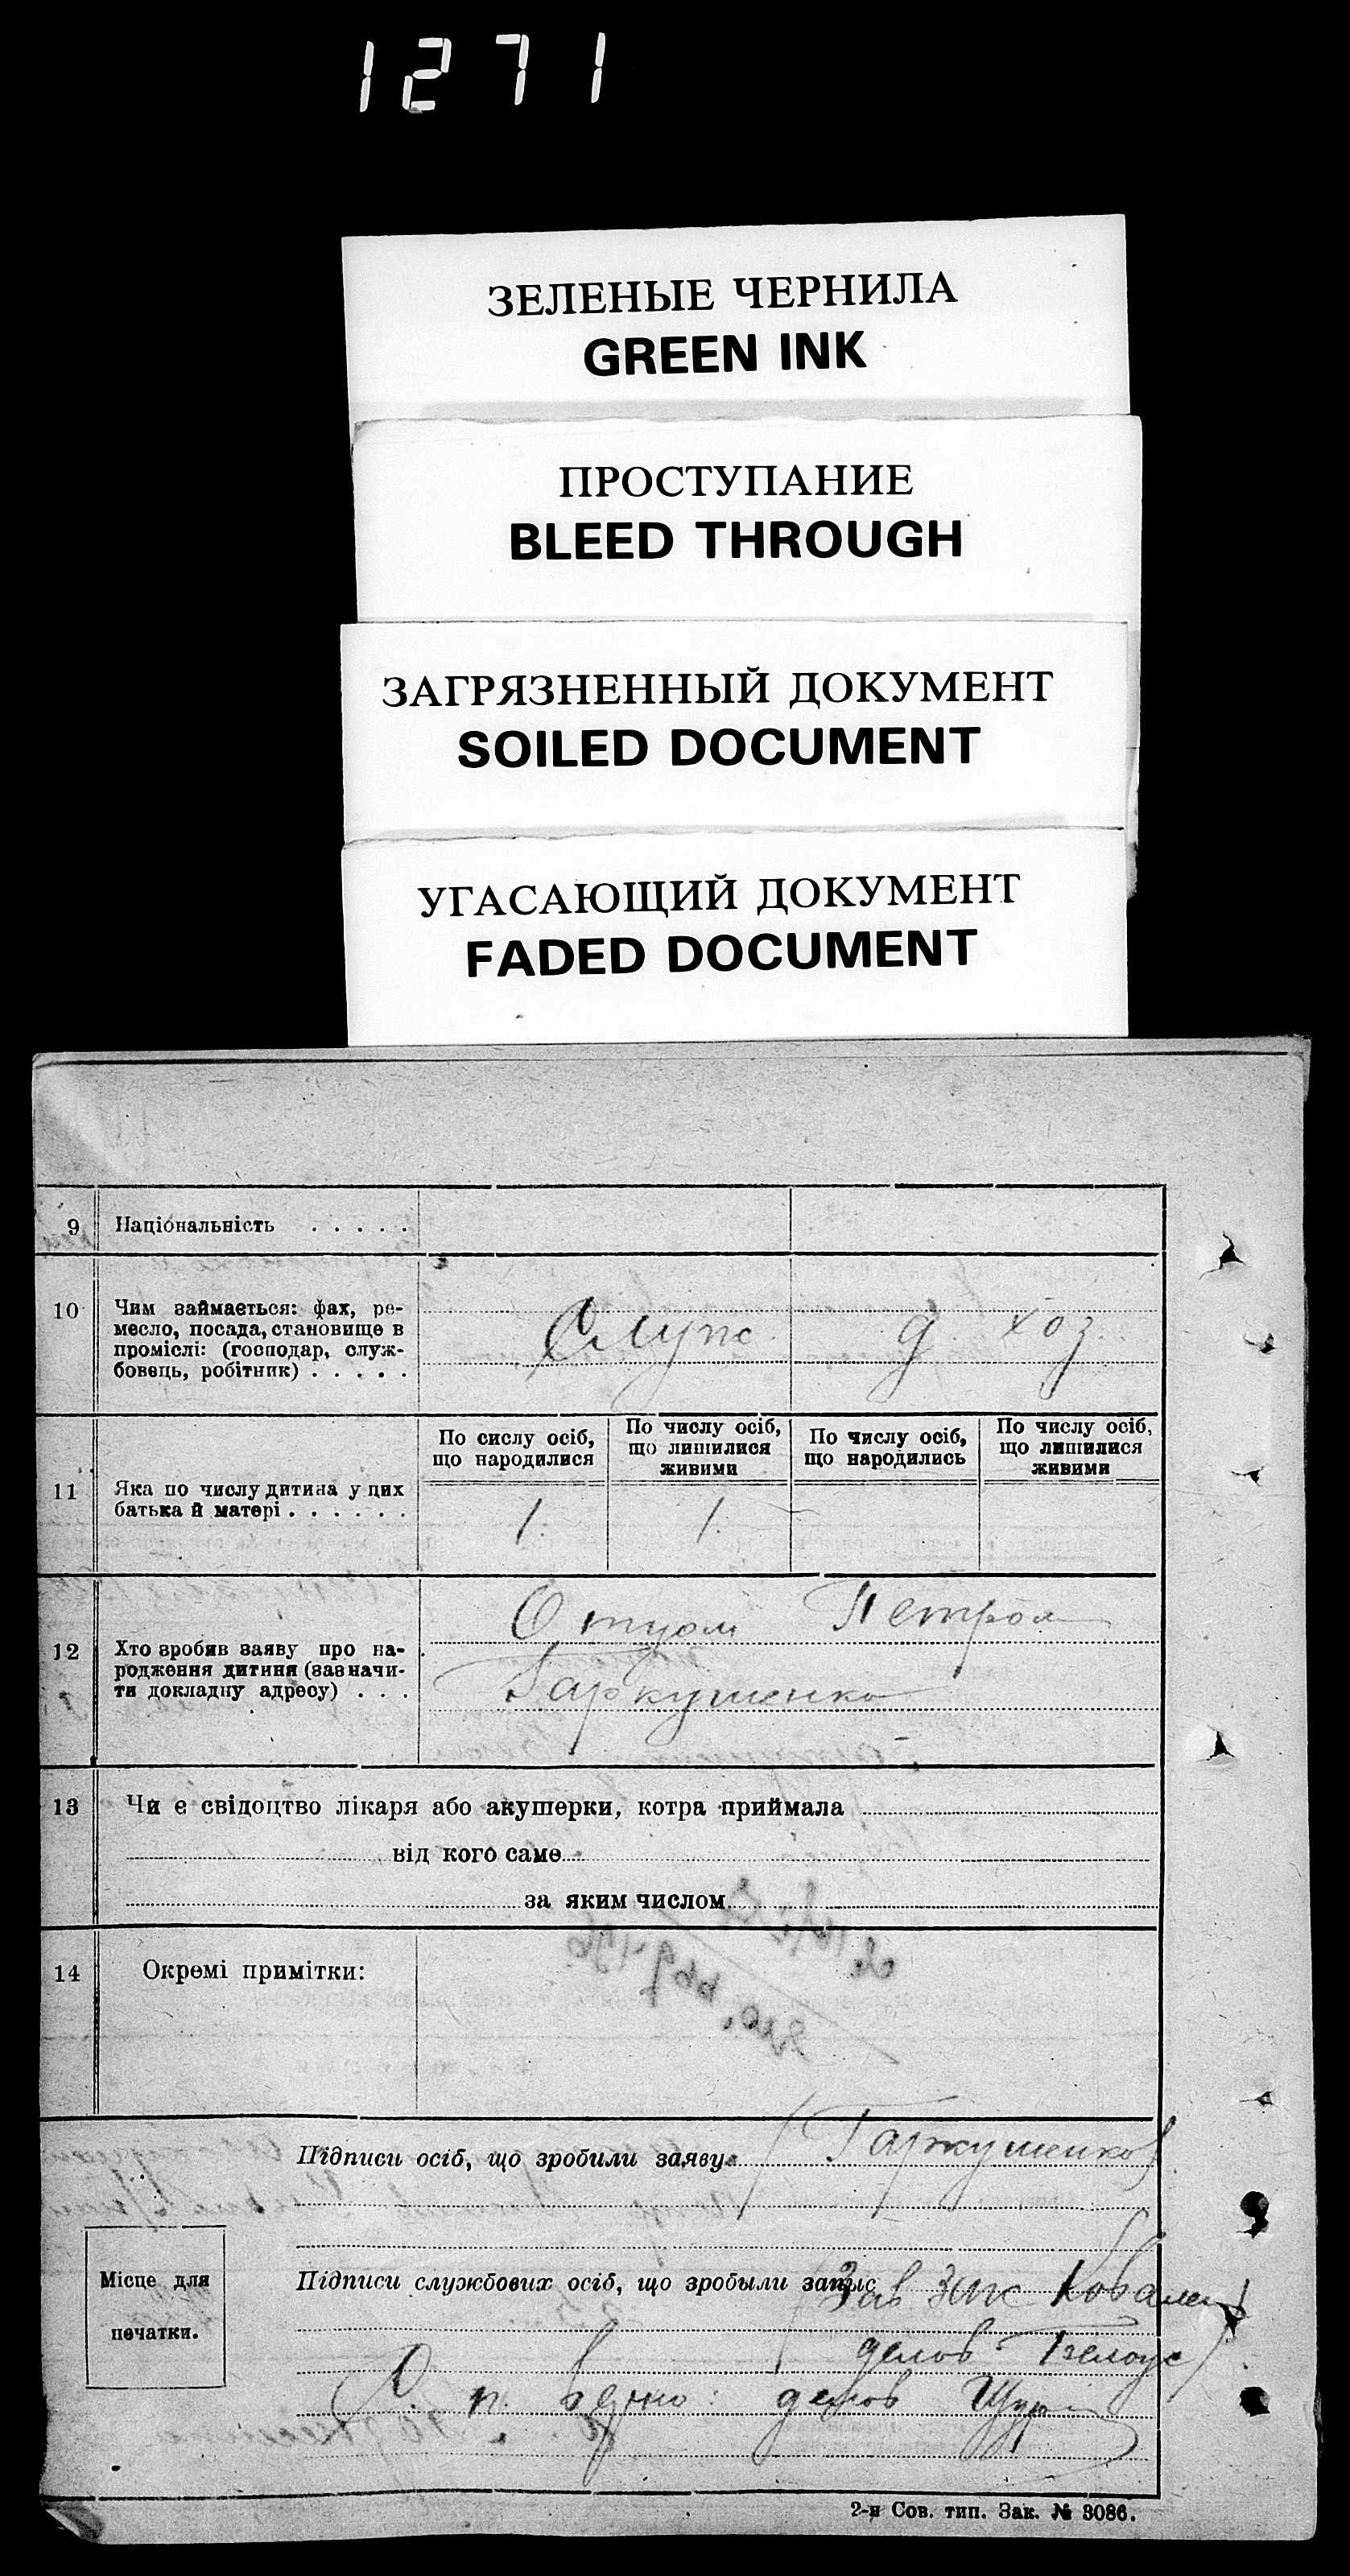 1271
ЗЕЛЕНЫЕ ЧЕРНИЛА
GREEN INK
ПРОСТУПАНИЕ
BLEED THROUGH
ЗАГРЯЗНЕННЫЙ ДОКУМЕНТ
SOILED DOCUMENT
УГАСАЮЩИЙ ДОКУМЕНТ
FADED DOCUMENT
9 Національність . . . . .
10 Чим займається: фах, ре-
месло, посада, становище в
проміслі: (господар, служ-
бовець, робітник) . . . . .
Служ. д. хоз.
По сислу осіб,
що народилися
По числу осіб,
що лишилися
живими
По числу осіб,
що народились
По числу осіб,
що лишилися
живими
11 Яка по числу дитина у цих
батька й матері . . . . . .
1. 1.
12 Хто зробив заяву про на-
родження дитини (зазначи-
ти докладну адресу) . . .
Отцом Петром
Гаркушенко
13 Чи є свідоцтво лікаря або акушерки, котра приймала
від кого саме
за яким числом
14 Окремі примітки:
Підписи осіб, що зробили заяву
(Гаркушенко)
Підписи службових осіб, що зробыли запыс
Зав Заг Ковален
делов Белоус)
С. п. вдно: делов
Місце для
печатки.
2-я Сов. тип. Зак. № 3086.